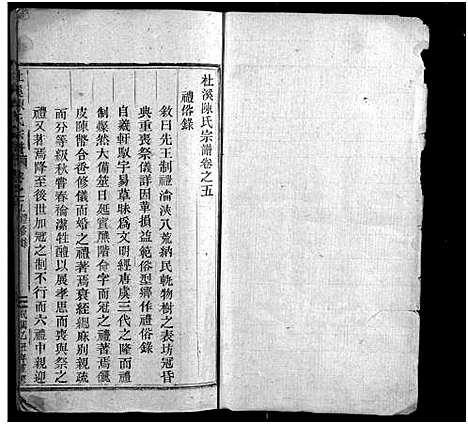 杜溪陳氏宗譜卷之五
禮俗錄
敘曰先王制禮淪浹八荒納民軌物樹之表坊冠昏
典重喪祭儀詳因革損益範俗型鄉作禮俗錄
自羲軒馭宇易草昧為文明經唐虞三代之隆而禮
制燦然大備筮日延賓醮階命字而冠之禮著焉儷
皮陳幣合巹修儀而婚之禮著焉衰絰緦麻別親疏
而分等級秋嘗春禴潔牲醴以展孝思而喪與祭之
禮又著焉降至後世加冠之制不行而六禮中親迎